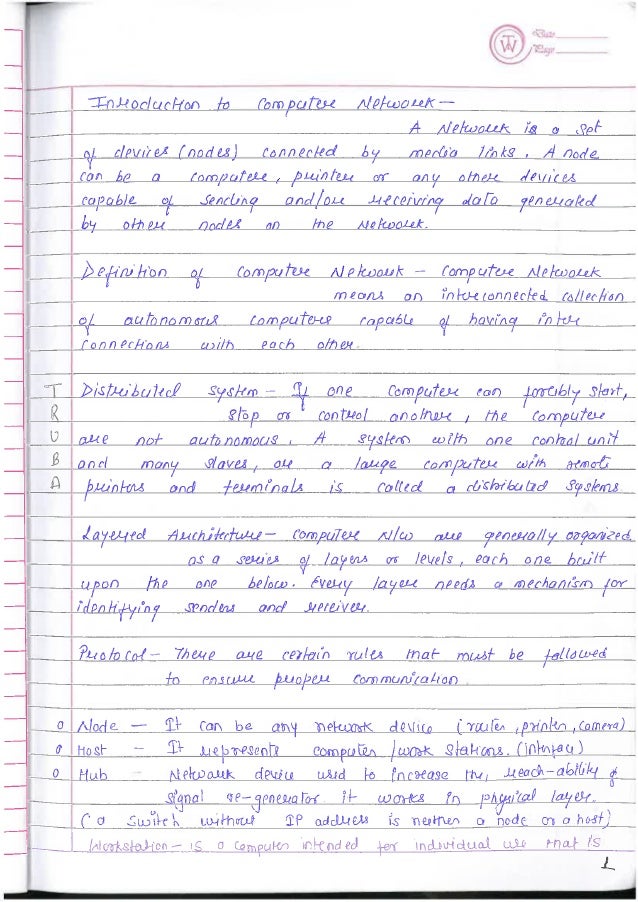 TW
Date
Page
Introduction to Computer Network –
A Network is a set
of devices (nodes) connected by media links. A node
can be a computer, printer or any other devices
capable of sending and/or receiving data generated
by other nodes on the Network.
Definition of Computer Network – Computer Network
means an interconnected collection
of autonomous computers capable of having inter
connections with each other.
Distributed System – If one computer can forcibly start,
Stop or control another, the computer
are not autonomous. A system with one control unit
and many slaves, or a large computer with remote
printers and terminals is called a distributed systems
TRUBA
Layered Architecture – Computer N/w are generally organized
as a series of layers or levels, each one built
upon the one below. Every layer needs a mechanism for
identifying senders and receiver.
Protocol – There are certain rules that must be followed
to ensure proper communication.
o Node – It can be any network device (router, printer, camera)
o Host – It represents computer / work stations. (interface)
o Hub – Network device used to increase the, reach-ability of
signal re-generator. it works in physical layer.
(a Switch without IP address is neither a node or a host)
Workstation – is a computer intended for individual use that is
1